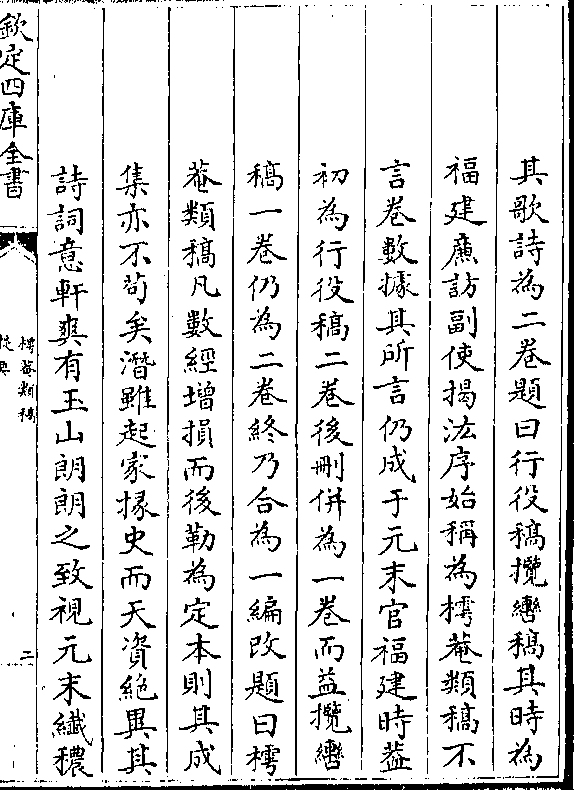 其歌詩為二卷題曰行役稿攬轡稿其時為
福建亷訪副使掲汯序始稱為樗菴類稿不
言卷數據其所言仍成于元末官福建時葢
初為行役稿二卷後刪併為一卷而益攬轡
稿一卷仍為二卷終乃合為一編改題曰樗
菴類稿凡數經增損而後勒為定本則其成
集亦不茍矣潛雖起家掾史而天資絶異其
詩詞意軒爽有玉山朗朗之致視元末纎穠
欽定四庫全書
樗菴類稿
提要
二